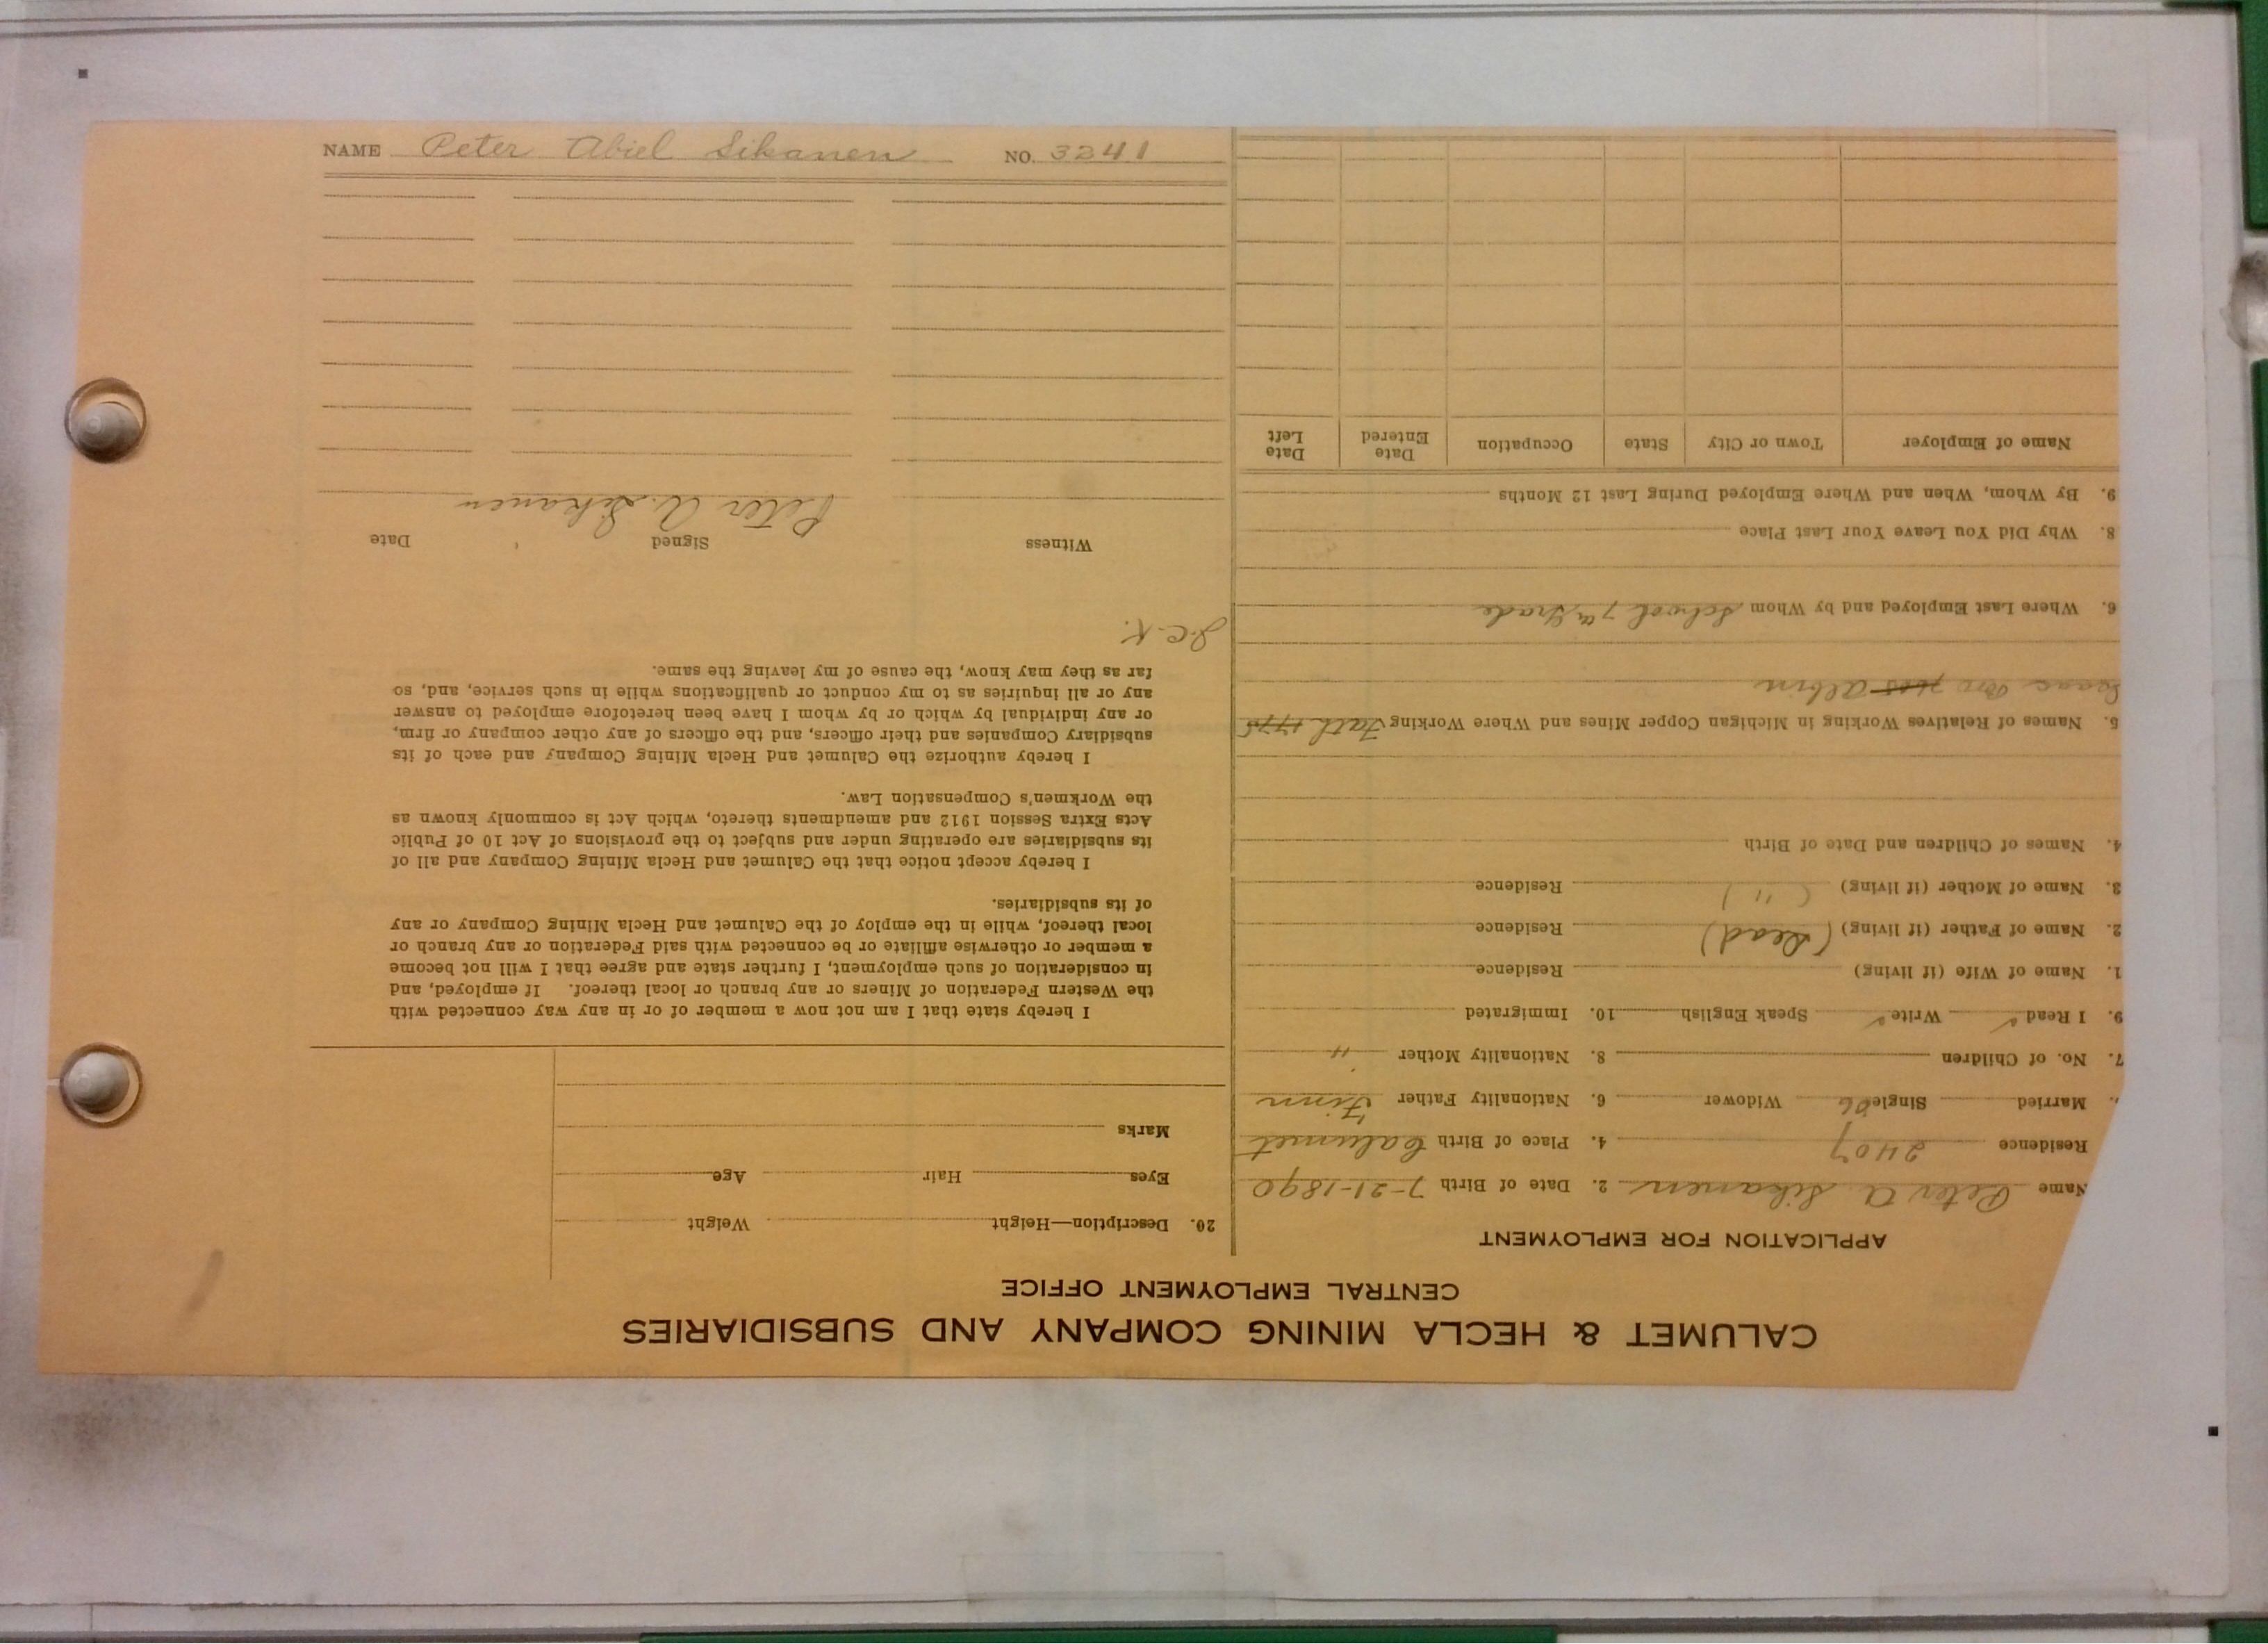 NAME Peter Abiel Sikanen NO. 3241
CALUMET & HECLA MINING COMPANY AND SUBSIDIARIES
CENTRAL EMPLOYMENT OFFICE
APPLICATION FOR EMPLOYMENT
Name Peter A Sikanen 2. Date of Birth 7-21-1890
Residence 2407 4. Place of Birth Calumet
Married Single 6. Widower 6. Nationality Father Finn
7. No. of Children 8. Nationality Mother "
9. I Read ✓ Write ✓ Speak English 10. Immigrated
1. Name of Wife (if living) Residence
2. Name of Father (if living) (Dead) Residence
3. Name of Mother (if living) ( " ) Residence
4. Names of Children and Date of Birth
5. Names of Relatives Working in Michigan Copper Mines and Where Working
Isaac Bro Albin
6. Where Last Employed and by Whom School 7th Grade
8. Why Did You Leave Your Last Place
9. By Whom, When and Where Employed During Last 12 Months
Name of Employer Town or City State Occupation Date Entered Date Left
20. Description—Height Weight
Eyes Hair Age
Marks
I hereby state that I am not now a member of or in any way connected with
the Western Federation of Miners or any branch or local thereof. If employed, and
in consideration of such employment, I further state and agree that I will not become
a member or otherwise affiliate or be connected with said Federation or any branch or
local thereof, while in the employ of the Calumet and Hecla Mining Company or any
of its subsidiaries.
I hereby accept notice that the Calumet and Hecla Mining Company and all of
its subsidiaries are operating under and subject to the provisions of Act 10 of Public
Acts Extra Session 1912 and amendments thereto, which Act is commonly known as
the Workmen's Compensation Law.
I hereby authorize the Calumet and Hecla Mining Company and each of its
subsidiary Companies and their officers, and the officers of any other company or firm,
or any individual by which or by whom I have been heretofore employed to answer
any or all inquiries as to my conduct or qualifications while in such service, and, so
far as they may know, the cause of my leaving the same.
J.C.K.
Witness Signed Date
Peter A. Sikanen